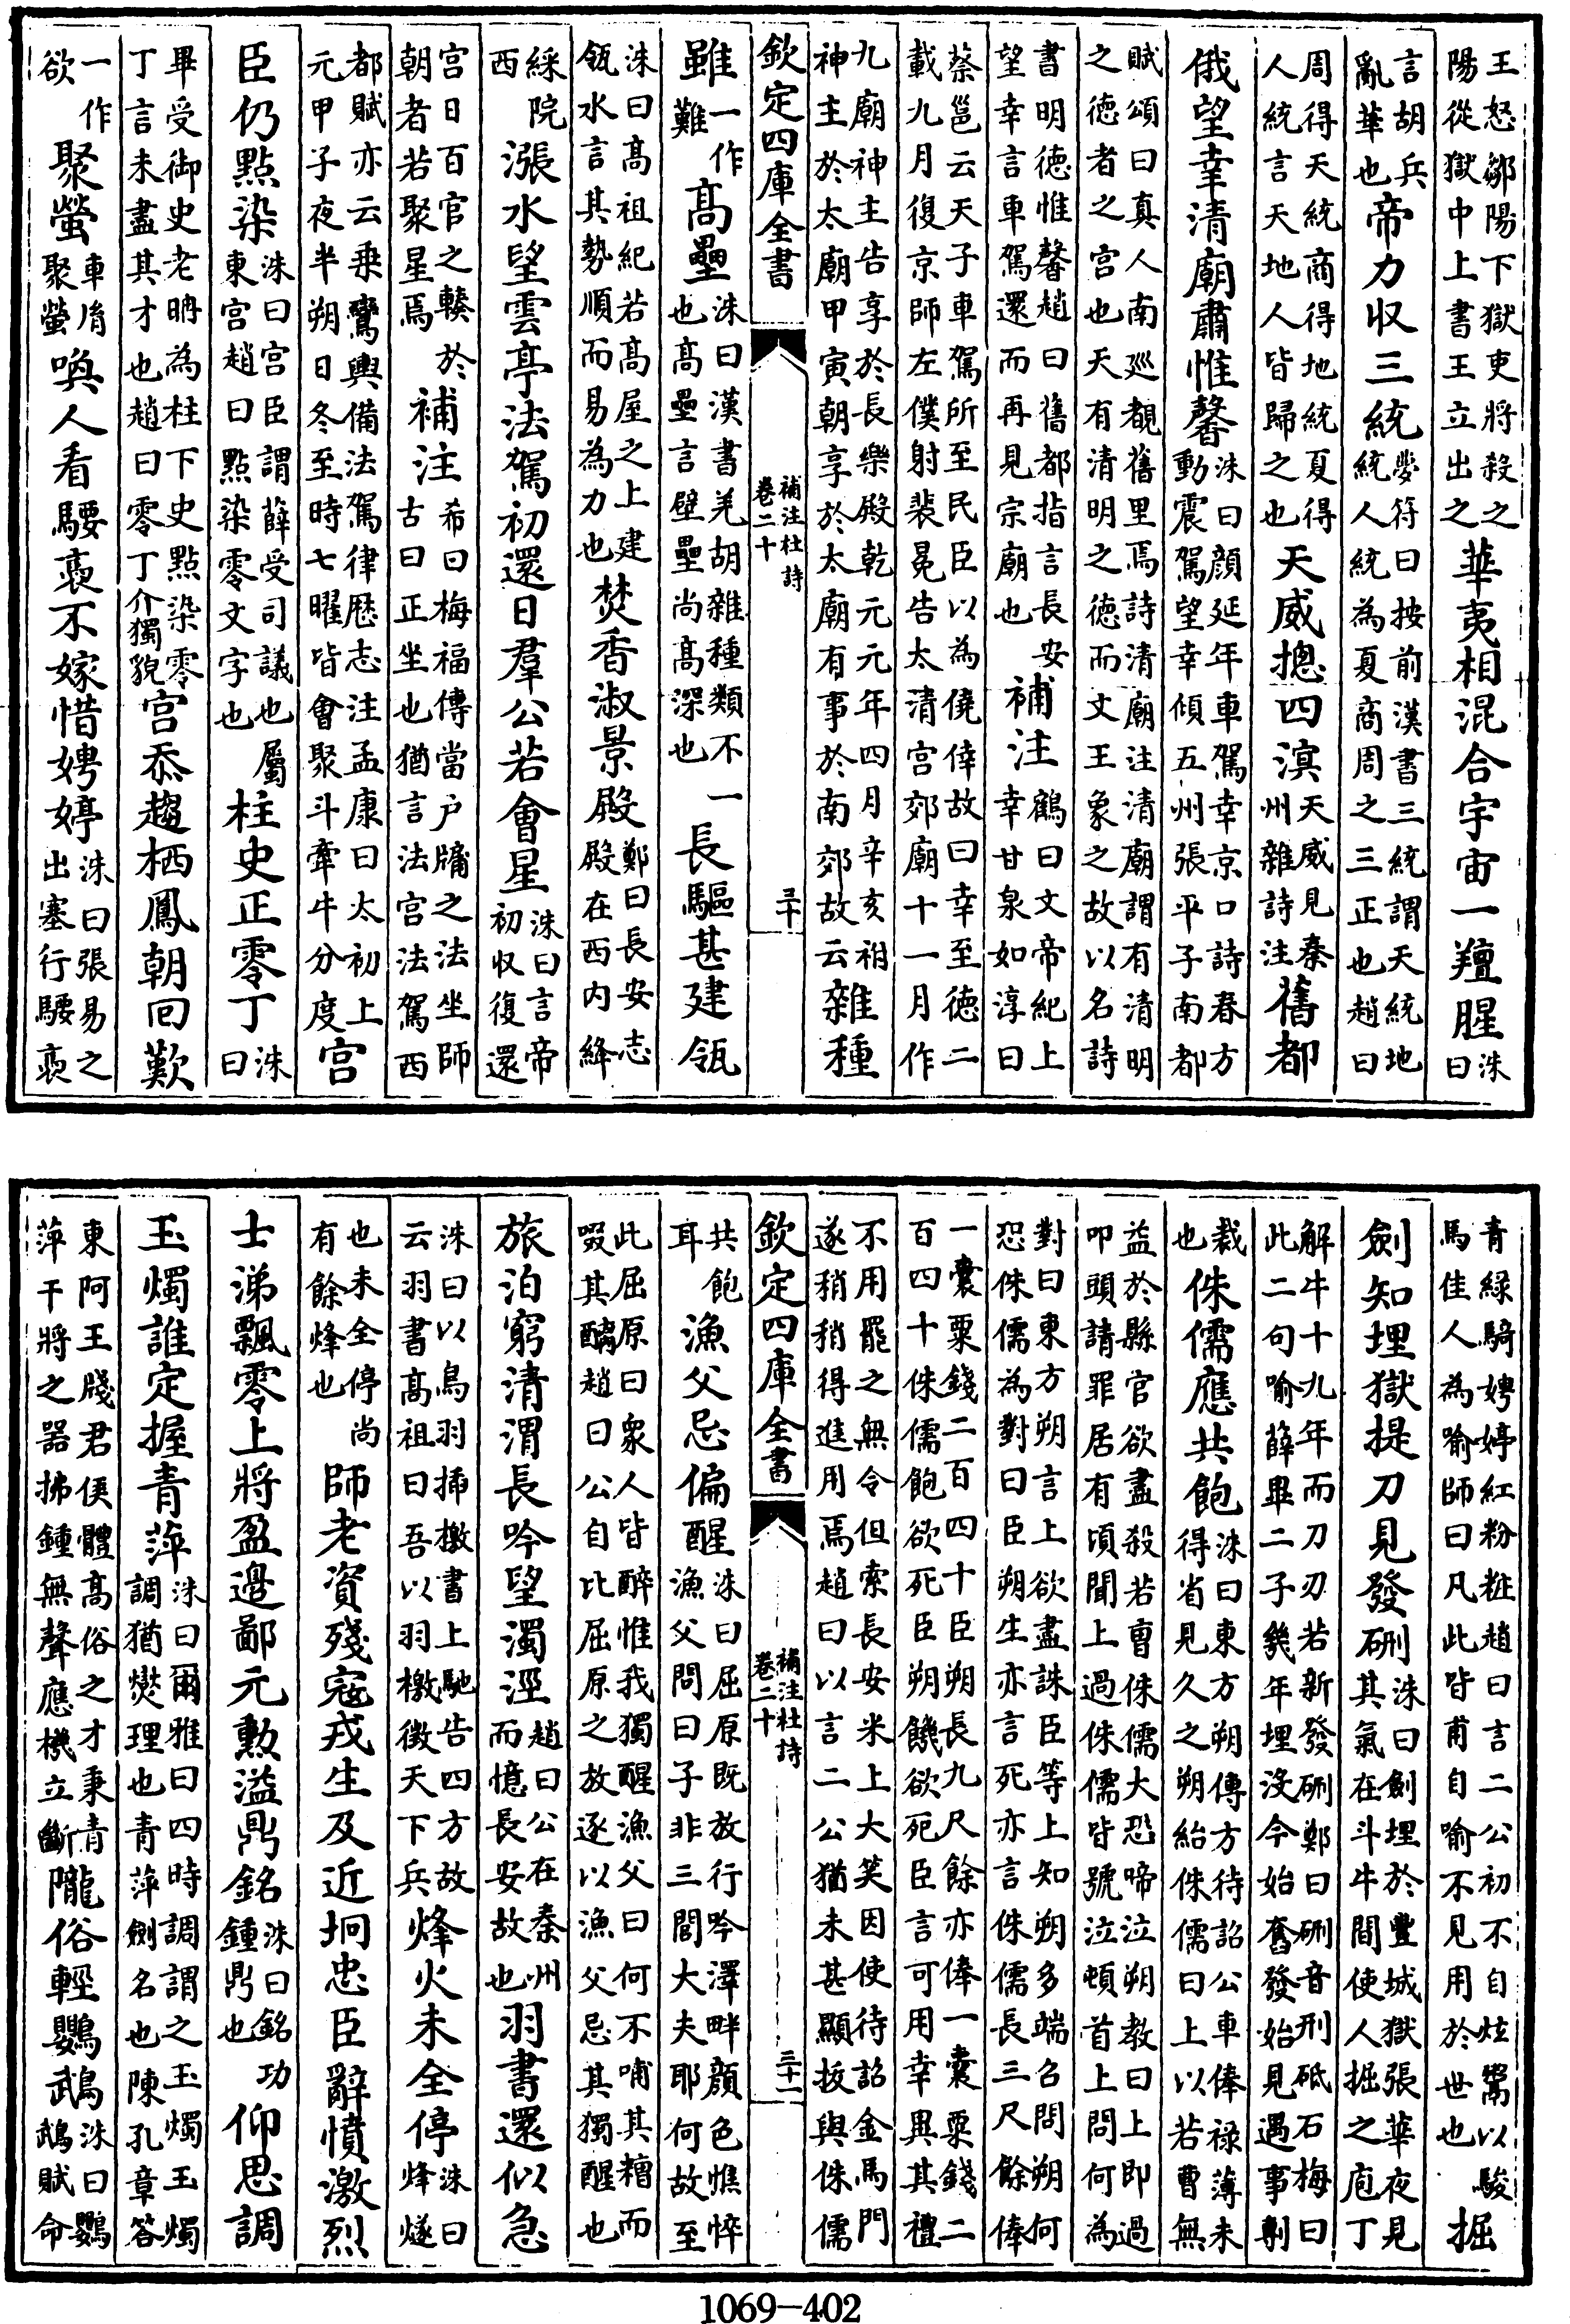 王怒鄒陽下獄吏將殺之陽從獄中上書王立出之華夷相混合宇宙一羶腥洙曰
言胡兵亂華也帝力収三統夢符曰按前漢書三統謂天統地統人統為夏商周之三正也趙曰
周得天統商得地統夏得人統言天地人皆歸之也天威摠四溟天威見秦州雜詩注舊都
俄望幸清廟肅惟馨洙曰顔延年車駕幸京口詩春方動震駕望幸傾五州張平子南都
賦頌曰真人南巡覩舊里焉詩清廟注清廟謂有清明之德者之宫也天有清明之德而文王象之故以名詩
書明德惟馨趙曰舊都指言長安望幸言車駕還而再見宗廟也補注鶴曰文帝紀上幸甘泉如淳曰
蔡邕云天子車駕所至民臣以為僥倖故曰幸至德二載九月復京師左僕射裴冕告太清宫郊廟十一月作
九廟神主告享於長樂殿乾元元年四月辛亥祔神主於太廟甲寅朝享於太廟有事於南郊故云雜種
欽定四庫全書 補注杜詩 卷二十 三十
雖一作難高壘洙曰漢書羌胡雜種類不一也高壘言壁壘尚高深也長驅甚建瓴
洙曰高祖紀若高屋之上建瓴水言其勢順而易為力也焚香淑景殿鄭曰長安志殿在西内絳
綵院西漲水望雲亭法駕初還日羣公若會星洙曰言帝初収復還
宫日百官之輳於朝者若聚星焉補注希曰梅福傳當户牖之法坐師古曰正坐也猶言法宫法駕西
都賦亦云乗鸞輿備法駕律歴志注孟康曰太初上元甲子夜半朔日冬至時七曜皆會聚斗牽牛分度宫
臣仍點染洙曰宫臣謂薛受司議也屬東宫趙曰點染零文字也柱史正零丁洙曰
畢受御史老聃為柱下史點染零丁言未盡其才也趙曰零丁介獨貌宫忝趨栖鳳朝回歎
一作欲聚螢車胤聚螢喚人看騕褭不嫁惜娉婷洙曰張易之出塞行騕褭
青緑騎娉婷紅粉粧趙曰言二公初不自炫鬻以駿馬佳人為喻師曰凡此皆甫自喻不見用於世也掘
劍知埋獄提刀見發硎洙曰劍埋於豐城獄張華夜見其氣在斗牛間使人掘之庖丁
解牛十九年而刀刃若新發硎鄭曰硎音刑砥石梅曰此二句喻薛畢二子幾年埋没今始奮發始見遇事剸
裁也侏儒應共飽洙曰東方朔傳方待詔公車俸禄薄未得省見久之朔紿侏儒曰上以若曹無
益於縣官欲盡殺若曹侏儒大恐啼泣朔教曰上即過叩頭請罪居有頃聞上過侏儒皆號泣頓首上問何為
對曰東方朔言上欲盡誅臣等上知朔多端召問朔何恐侏儒為對曰臣朔生亦言死亦言侏儒長三尺餘俸
一囊粟錢二百四十臣朔長九尺餘亦俸一囊粟錢二百四十侏儒飽欲死臣朔饑欲死臣言可用幸異其禮
不用罷之無令但索長安米上大笑因使待詔金馬門遂稍稍得進用焉趙曰以言二公猶未甚顯拔與侏儒
欽定四庫全書 補注杜詩 卷二十 三十一
共飽耳漁父忌偏醒洙曰屈原既放行吟澤畔顔色憔悴漁父問曰子非三閭大夫耶何故至
此屈原曰衆人皆醉惟我獨醒漁父曰何不哺其糟而啜其醨趙曰公自比屈原之放逐以漁父忌其獨醒也
旅泊窮清渭長吟望濁涇趙曰公在秦州而憶長安故也羽書還似急
洙曰以鳥羽挿檄書上馳告四方故云羽書高祖曰吾以羽檄徵天下兵烽火未全停洙曰烽燧
也未全停尚有餘烽也師老資殘寇戎生及近坰忠臣辭憤激烈
士涕飄零上將盈邉鄙元勲溢鼎銘洙曰銘功鍾鼎也仰思調
玉燭誰定握青萍洙曰爾雅曰四時調謂之玉燭玉燭調猶燮理也青萍劍名也陳孔章答
東阿王牋君侯體高俗之才秉青萍干將之器拂鍾無聲應機立斷隴俗輕鸚鵡洙曰鸚鵡賦命
1069—402